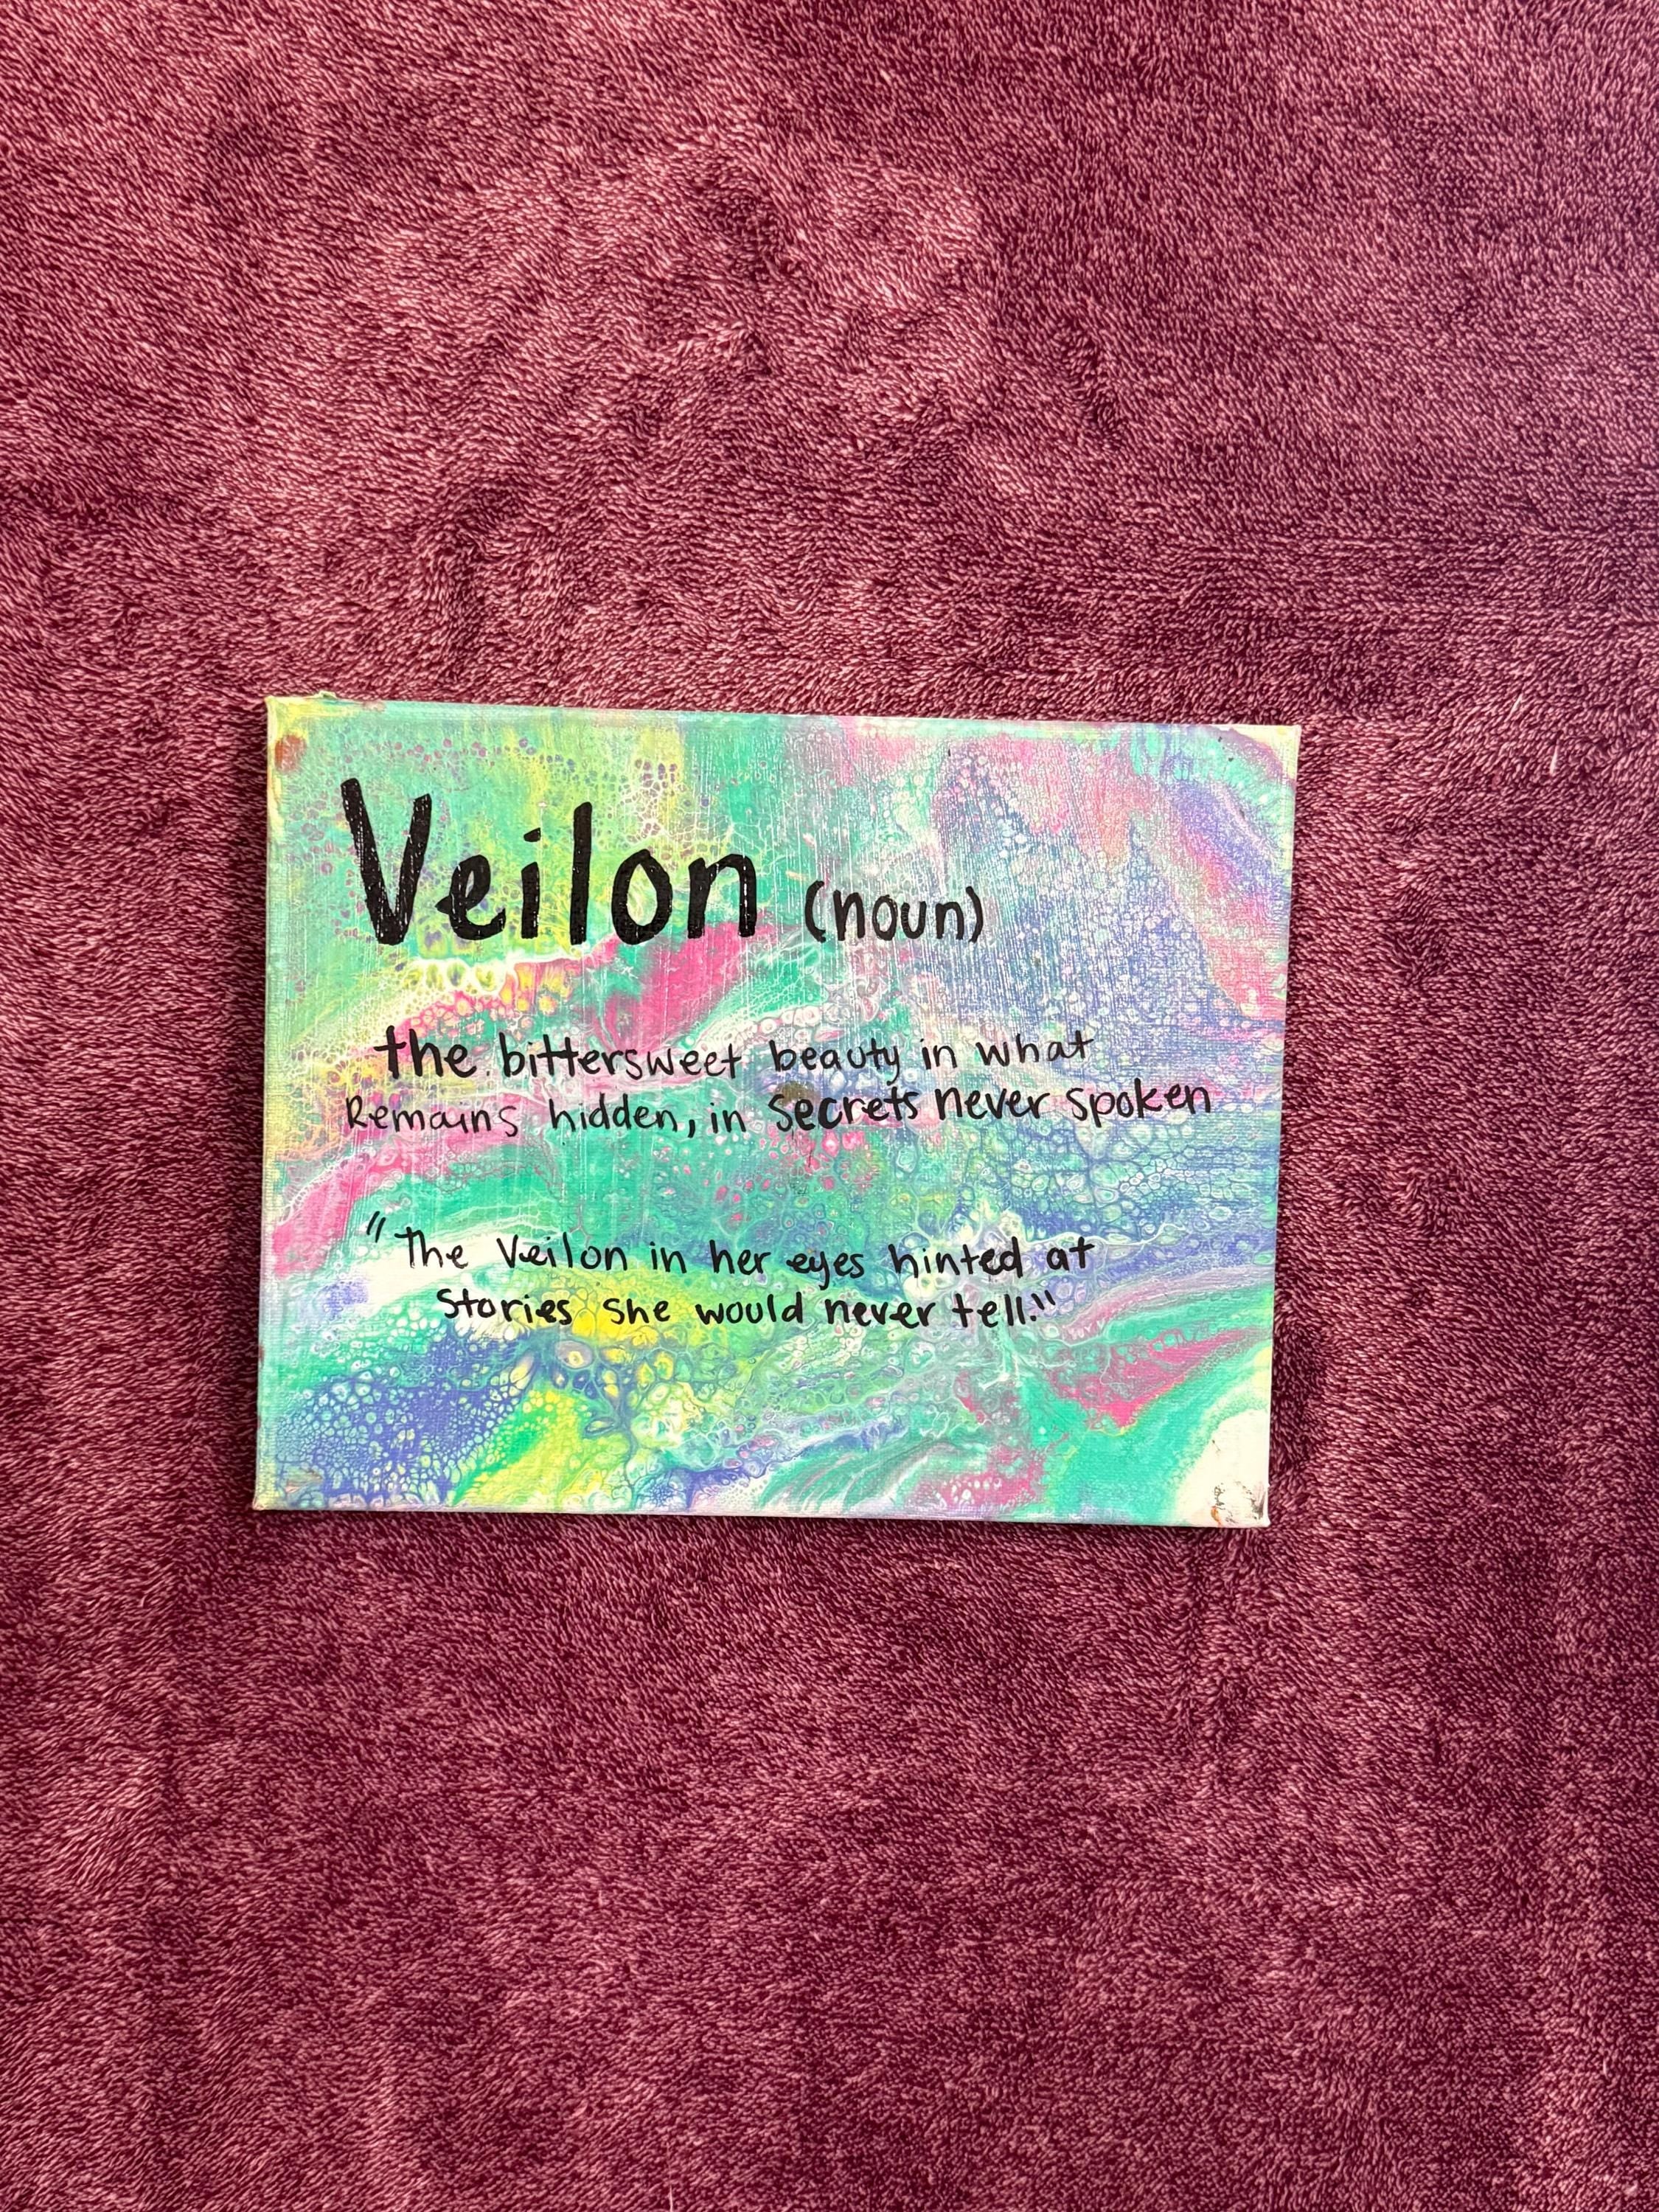 Veilon (noun)
the bittersweet beauty in what
Remains hidden, in secrets never spoken
"The Veilon in her eyes hinted at
Stories she would never tell."